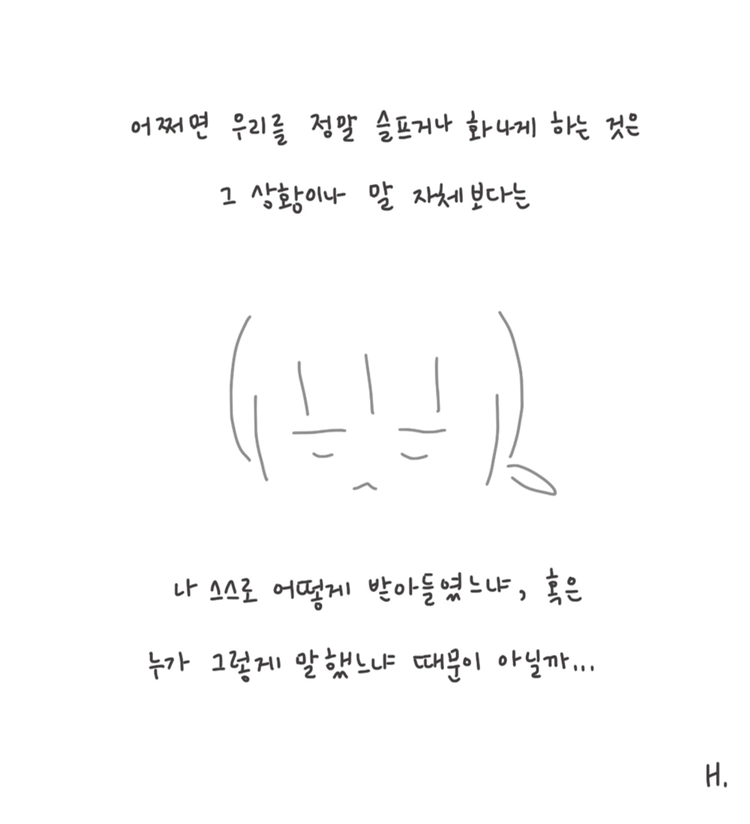 어쩌면 우리를 정말 슬프거나 화나게 하는 것은
그 상황이나 말 자체보다는
나 스스로 어떻게 받아들였느냐, 혹은
누가 그렇게 말했느냐 때문이 아닐까...
H.